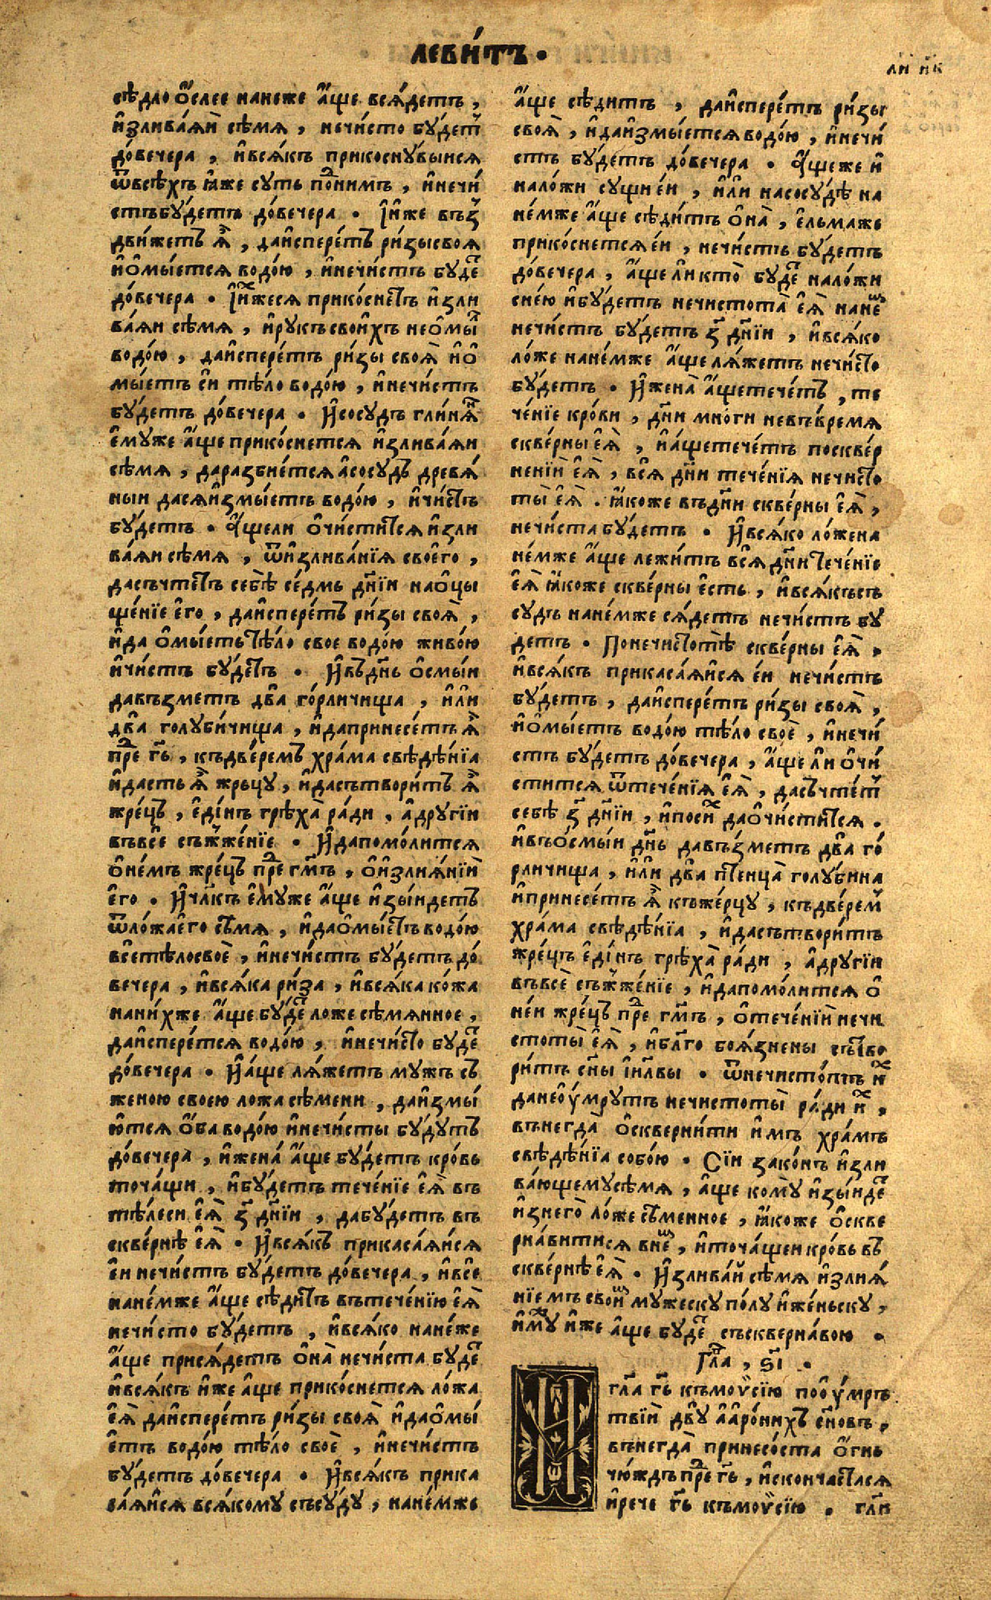 левѝтъ ·
ли́ и҆к
сѣдло ѻ҆́слее нанеже а҆́ще вся́детъ ,
и҆злива́яи сѣ́мя , нечи́сто бу́деⷮ
до́вечера , и҆вся́къ прикоснувы́ися
ѿвсѣ́хъ ꙗ҆́же суть поⷣни́мъ , и҆нечи́
стъбу́детъ до́вечера · І҆и҆́же въꙁⸯ
дви́жетъ ѧ҆̀ , даи҆спере́тъ ри́зысвоя
и҆ѻ҆мы́ется водо́ю , и҆нечи́стъ бу́деⷮ
до́вечера · І҆и҆́жеся прикосне́тъ и҆зли
ва́яи сѣ́мя , и҆рукъ свои́хъ неѻ҆мы́ⷮ
водо́ю , даи҆спере́тъ ри́зы своя̀ и҆ѻ҆
мы́етъ си тѣ́ло водо́ю , и҆нечи́стъ
бу́детъ до́вечера · И҆сосудъ гли́няⷩ
е҆муже а҆́ще прикосне́тся и҆злива́яи
сѣ́мя , даразбие́тся а҆сосудъ древя́
ныи дася́и҆змы́етъ водо́ю , и҆чи́стъ
бу́детъ · А҆́щели ѻ҆чи́стится и҆зли
ва́яи сѣ́мя , ѿи҆злива́нїя свое́го ,
дасъчте́тъ себѣ̀ се́дмь дн҃їи наѻ҆цы
ще́нїе е҆го̀ , даи҆спере́тъ ри́зы своя̀ ,
и҆да ѻ҆мы́етьтѣ́ло свое водо́ю живо́ю
и҆чи́стъ бу́детъ · И҆въдн҃ь ѻ҆смы́и
давъзметъ два̀ го́рличища , и҆лѝ
два̀ голуби́чища , и҆дапринесе́тъ ѧ҆̀
преⷣ гм҃ь , къдве́ремъ хра́ма свѣдѣ́нїа
и҆дасть ѧ҆̀ жрьцу , и҆дасътвори́тъ ѧ҆̀
жре́цъ , е҆ди́нъ грѣха̀ ра́ди , а҆другїи
въвсе съжже́нїе · И҆дапомо́лится
ѻ҆не́мъ жре́цъ преⷣ гм҃ъ , ѻ҆и҆злия́нїи
е҆го · И҆чл҃къ е҆му́же а҆́ще и҆зы́идетъ
ѿло́жае҆го сѣ́мя , и҆даѻ҆мы́етъ водо́ю
всетѣ́лосвоѐ , и҆нечи́стъ бу́детъ до́
вечера , и҆вся́ка ри́за , и҆вся́ка ко́жа
нани́хже а҆́ще бу́деⷮ ложе сѣ́мянное ,
даи҆спере́тся водо́ю , и҆нечи́сто бу́деⷮ
до́вечера · И҆а҆́ще ля́жетъ му́жъ съ
женою своею ложа сѣ́мени , даи҆змы́
ю́тся ѻ҆́ба водо́ю и҆нечи́сты бу́дутъ
до́вечера , и҆жена̀ а҆́ще бу́детъ кро́вь
точа́щи , и҆бу́детъ тече́нїе е҆я̀ въ
тѣ́леси е҆я̀ з҃ дн҃їи , дабу́детъ въ
скве́рнѣ е҆я̀ · И҆вся́къ прикаса́яися
е҆и нечи́стъ бу́детъ до́вечера , и҆всѐ
нане́мже а҆́ще сѣди́тъ въ тече́нїю е҆я̀
нечи́сто бу́детъ , и҆вся́ко нане́же
а҆́ще прися́детъ ѻ҆на̀ нечи́ста бу́деⷮ
и҆вся́къ и҆́же а҆́ще прикосне́тся ло́жа
е҆я̀ даи҆спере́тъ ри́зы своя̀ и҆даѻ҆мы́
е҆тъ водо́ю тѣ́ло своѐ , и҆нечи́стъ
бу́детъ до́вечера · И҆вся́къ прика
са́яися вся́кому съсу́ду , нане́мже
а҆́ще сѣди́тъ , даи҆спере́тъ ри́зы
своя̀ , и҆даи҆змы́ется водо́ю , и҆нечи́
стъ бу́детъ до́вечера · А҆́щеже и҆
нало́жи сущи е҆́и , и҆лѝ насосу́дѣ на
не́мже а҆́ще сѣди́тъ ѻ҆на̀ , е҆льмаже
прико́снется е҆́и , нечи́стъ бу́детъ
до́вечера , а҆́ще ли кто̀ бу́деⷮ нало́жи
сне́ю и҆бу́детъ нечистота̀ е҆я̀ нанеⷨ
нечи́стъ бу́детъ з҃ дн҃їи , и҆вся́ко
ло́же нане́мже а҆́ще ля́жетъ нечи́сто
бу́детъ · И҆жена̀ а҆́щетече́тъ , те
че́нїе кро́ви , дн҃и мно́ги невъ́время
скве́рны е҆я̀ , и҆а҆́щетече́тъ посквер
не́нїи е҆я̀ , вся̀ дн҃и тече́нїя нечи́сто
ты̀ е҆я̀ . ꙗ҆́коже въдн҃и скве́рны е҆я̀ ,
нечи́ста бу́детъ · И҆вся́ко ло́жена
не́мже а҆́ще лежи́тъ вся̀ дн҃и тече́нїе
е҆я̀ ꙗ҆́коже скве́рны е҆́сть , и҆вся́късъ
су́дъ нане́мже ся́детъ нечи́стъ бу́
детъ · Понечи́стотѣ скве́рны е҆я̀ ,
и҆вся́къ прикаса́яися е҆́и нечи́стъ
бу́детъ , даи҆спере́тъ ри́зы своя̀ ,
и҆ѻ҆мы́етъ водо́ю тѣ́ло своѐ , и҆нечи́
стъ бу́детъ до́вечера , а҆́ще ли ѻ҆чи́
стится ѿтече́нїя е҆я̀ , дасъчте́тⸯ
себѣ̀ з҃ дн҃їи , и҆посиⷯ даѻ҆чи́стится .
и҆въѻ҆смы́и дн҃ь давъзметъ два̀ го́
рличища , и҆лѝ два̀ птенца̀ голуби́на
и҆принесе́тъ ѧ҆̀ къже́рцу , къдве́реⷨ
хра́ма свѣдѣ́нїа , и҆дасътвори́тъ
жре́цъ е҆ди́нъ грѣха̀ ра́ди , а҆другїи
въвсѐ съжже́нїе , и҆дапомо́лится ѻ҆
не́и жре́цъ преⷣ гм҃ъ , ѻ҆тече́нїи нечи
стоты̀ е҆я̀ , и҆бл҃го боя́знены сътво
ри́тъ сн҃ы і҆и҃лвы · ѿнечисто́тъ иⷯ
данеѹ҆́мрутъ нечистоты̀ ра́ди иⷯ ,
внегда ѻ҆скверни́ти и҆́мъ хра́мъ
свѣдѣ́нїа собо́ю · Сїи зако́нъ и҆зли
ва́ющемусѣ́мя , а҆́ще кому̀ и҆зы́идеⷮ
и҆знего̀ ло́же сѣ́менное , ꙗ҆́коже ѻ҆скве
рня́витися внеⷨ , и҆точа́щеи кро́вь въ
скве́рнѣ е҆я̀ · И҆злива́й сѣ́мя и҆злия́
нїе мъ свои́ⷨ му́жеску по́лу и҆же́ньску ,
и҆му́ⷤ и҆́же а҆́ще бу́деⷮ съскверна́вою ·
Гл҃а , ѕ҃і ·
И гл҃а гь҃ къмоѵ̈се́ю поѹ҆мръ
твїи двѹ̀ а҆аро́нихъ сн҃овъ ,
внегда̀ принесо́ста ѻ҆́гнь
чю́ждъ преⷣ гь҃ , и҆сконча́стася
и҆рече гь҃ къмоѵ̈се́ю , гл҃и